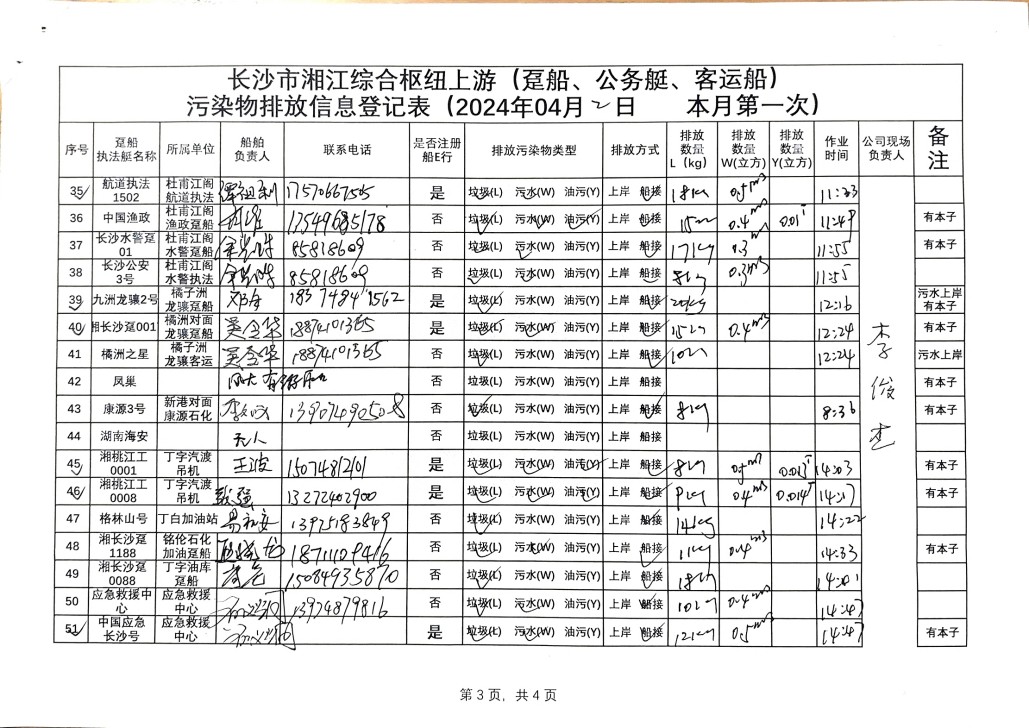 长沙市湘江综合枢纽上游（趸船、公务艇、客运船）
污染物排放信息登记表（2024年04月2日 本月第一次）
序号 趸船执法艇名称 所属单位 船舶负责人 联系电话 是否注册船E行 排放污染物类型 排放方式 排放数量L（kg） 排放数量W(立方) 排放数量Y(立方) 作业时间 公司现场负责人 备注
35 航道执法1502 杜甫江阁航道执法 17570667505 是 垃圾(L) 污水(W) 油污(Y) 上岸 船接 18kg 0.5m³ 11:33
36 中国渔政 杜甫江阁渔政趸船 13549685178 否 垃圾(L) 污水(W) 油污(Y) 上岸 船接 0.4m³ 11:49 有本子
37 长沙水警趸01 杜甫江阁水警趸船 85818609 否 垃圾(L) 污水(W) 油污(Y) 上岸 船接 17kg 0.3m³ 11:55 有本子
38 长沙公安3号 杜甫江阁水警执法 85818609 否 垃圾(L) 污水(W) 油污(Y) 上岸 船接 8kg 0.3m³ 11:55
39 九洲龙骧2号 橘子洲龙骧趸船 邓海 18374847562 是 垃圾(L) 污水(W) 油污(Y) 上岸 船接 20kg 12:16 污水上岸有本子
40 湘长沙趸001 橘洲对面龙骧趸船 18874101355 是 垃圾(L) 污水(W) 油污(Y) 上岸 船接 15kg 0.4m³ 12:24 有本子
41 橘洲之星 橘子洲龙骧客运 18874101355 否 垃圾(L) 污水(W) 油污(Y) 上岸 船接 10kg 12:24 污水上岸
42 凤巢 否 垃圾(L) 污水(W) 油污(Y) 上岸 船接 有本子
43 康源3号 新港对面康源石化 13907490508 否 垃圾(L) 污水(W) 油污(Y) 上岸 船接 8kg 8:36 有本子
44 湖南海安 无人 否 垃圾(L) 污水(W) 油污(Y) 上岸 船接
45 湘桃江工0001 丁字汽渡吊机 王波 15074812101 是 垃圾(L) 污水(W) 油污(Y) 上岸 船接 8kg 14:03 有本子
46 湘桃江工0008 丁字汽渡吊机 13272402900 是 垃圾(L) 污水(W) 油污(Y) 上岸 船接 0.4m³ 14:17 有本子
47 格林山号 丁白加油站 13975183849 否 垃圾(L) 污水(W) 油污(Y) 上岸 船接 14kg 14:22
48 湘长沙趸1188 铭伦石化加油趸船 18711109416 否 垃圾(L) 污水(W) 油污(Y) 上岸 船接 11kg 0.4m³ 14:33 有本子
49 湘长沙趸0088 丁字油库趸船 15084935870 否 垃圾(L) 污水(W) 油污(Y) 上岸 船接 18kg 14:01
50 应急救援中心 应急救援中心 13974879816 否 垃圾(L) 污水(W) 油污(Y) 上岸 船接 10kg 0.4m³ 14:47
51 中国应急长沙号 应急救援中心 是 垃圾(L) 污水(W) 油污(Y) 上岸 船接 12kg 0.5m³ 14:47 有本子
李俊杰
第 3 页，共 4 页